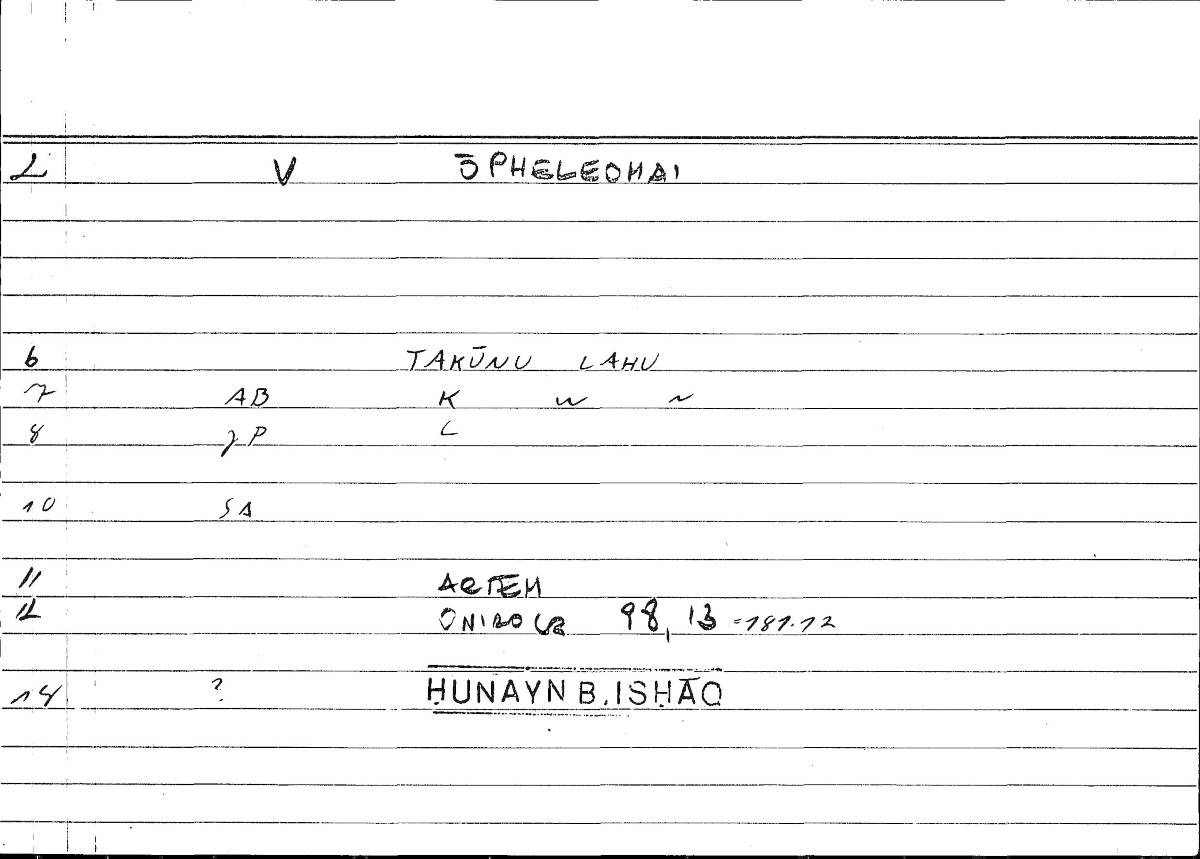 2 V ŌPHELEOMAI
6 TAKŪNU LAHU
7 AB K w n
8 JP L
10 SA
11 ARTEM
12 ONIROCR 98, 13 =181.12
14 ? ḤUNAYN B. ISḤĀQ